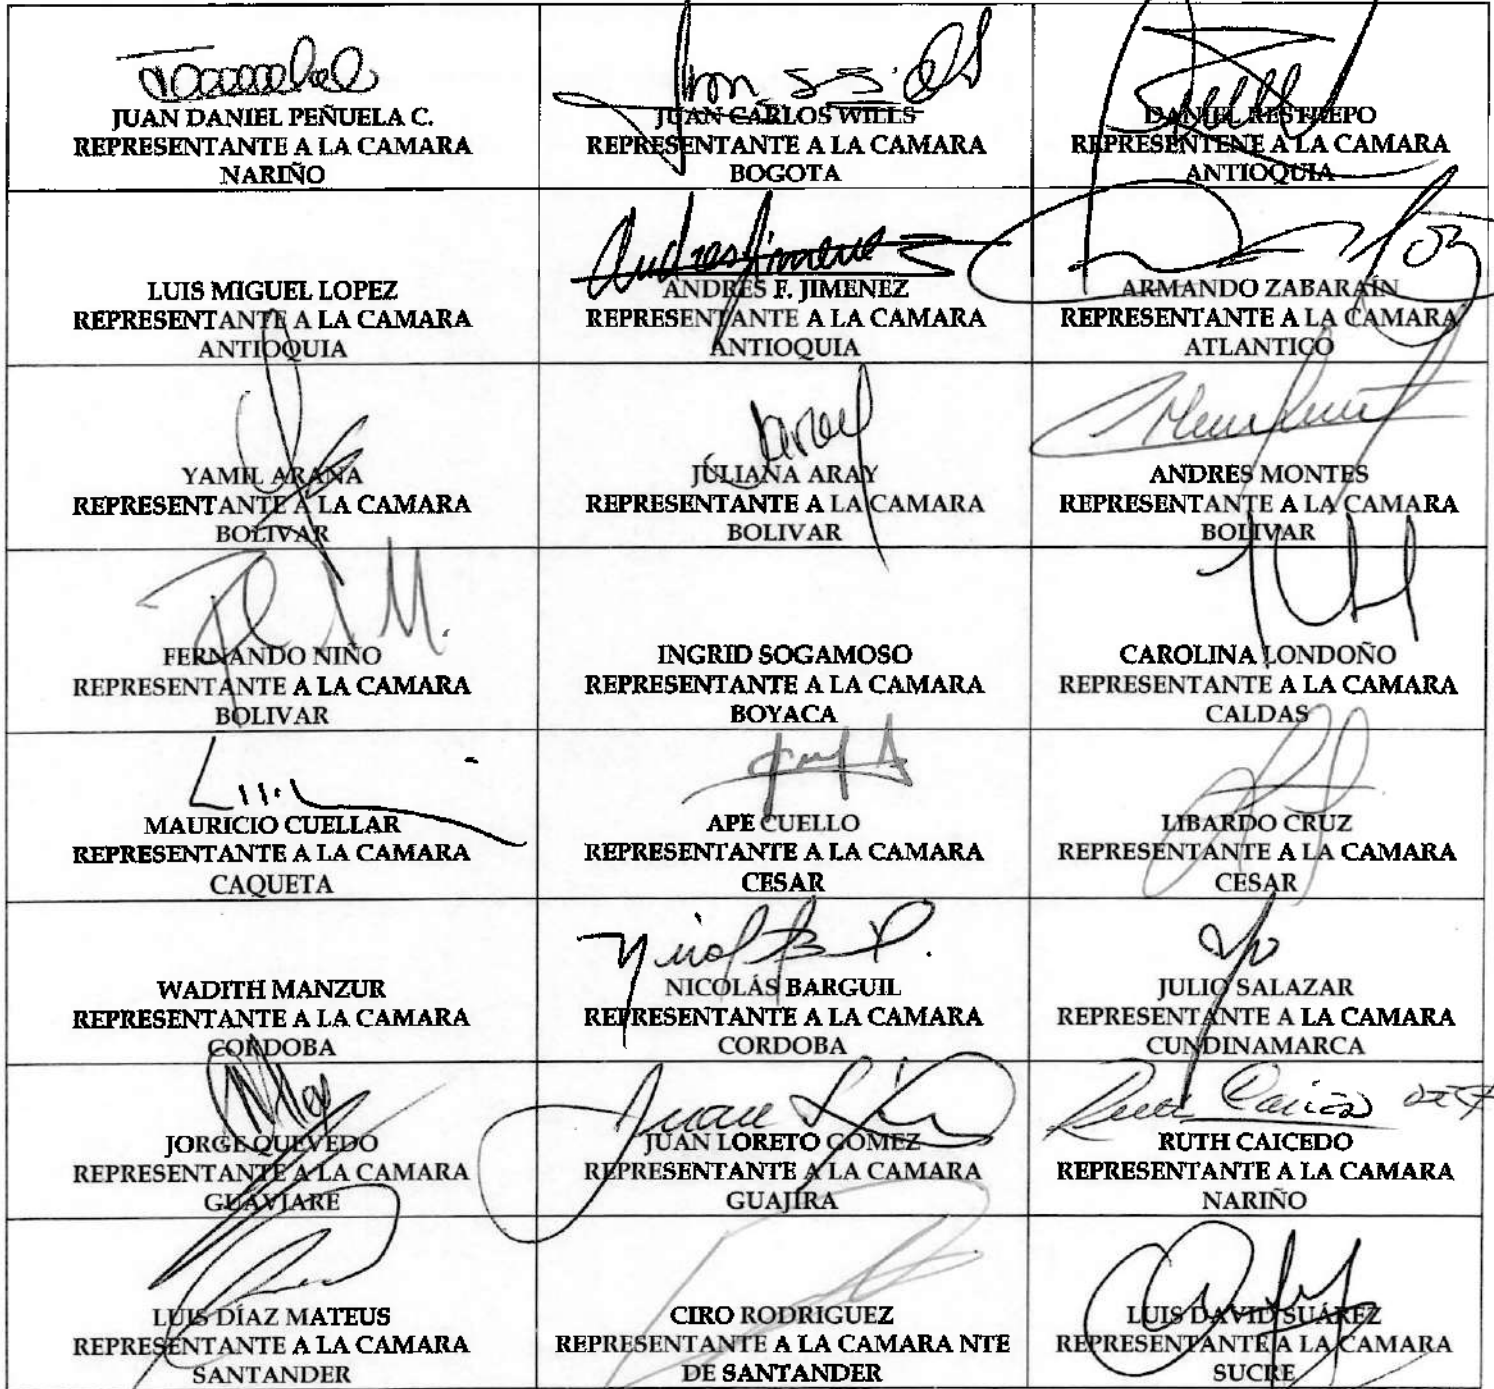 JUAN DANIEL PEÑUELA C.
REPRESENTANTE A LA CAMARA
NARIÑO
JUAN CARLOS WILLS
REPRESENTANTE A LA CAMARA
BOGOTA
DANIEL RESTREPO
REPRESENTENE A LA CAMARA
ANTIOQUIA
LUIS MIGUEL LOPEZ
REPRESENTANTE A LA CAMARA
ANTIOQUIA
Andres Jimene
ANDRES F. JIMENEZ
REPRESENTANTE A LA CAMARA
ANTIOQUIA
ARMANDO ZABARAÍN
REPRESENTANTE A LA CAMARA
ATLANTICO
YAMIL ARANA
REPRESENTANTE A LA CAMARA
BOLIVAR
JULIANA ARAY
REPRESENTANTE A LA CAMARA
BOLIVAR
ANDRES MONTES
REPRESENTANTE A LA CAMARA
BOLIVAR
FERNANDO NIÑO
REPRESENTANTE A LA CAMARA
BOLIVAR
INGRID SOGAMOSO
REPRESENTANTE A LA CAMARA
BOYACA
CAROLINA LONDOÑO
REPRESENTANTE A LA CAMARA
CALDAS
MAURICIO CUELLAR
REPRESENTANTE A LA CAMARA
CAQUETA
APE CUELLO
REPRESENTANTE A LA CAMARA
CESAR
LIBARDO CRUZ
REPRESENTANTE A LA CAMARA
CESAR
WADITH MANZUR
REPRESENTANTE A LA CAMARA
CORDOBA
NICOLÁS BARGUIL
REPRESENTANTE A LA CAMARA
CORDOBA
JULIO SALAZAR
REPRESENTANTE A LA CAMARA
CUNDINAMARCA
JORGE QUEVEDO
REPRESENTANTE A LA CAMARA
GUAVIARE
Juan
JUAN LORETO GOMEZ
REPRESENTANTE A LA CAMARA
GUAJIRA
Ruth Caicedo
RUTH CAICEDO
REPRESENTANTE A LA CAMARA
NARIÑO
LUIS DÍAZ MATEUS
REPRESENTANTE A LA CAMARA
SANTANDER
CIRO RODRIGUEZ
REPRESENTANTE A LA CAMARA NTE
DE SANTANDER
LUIS DAVID SUÁREZ
REPRESENTANTE A LA CAMARA
SUCRE